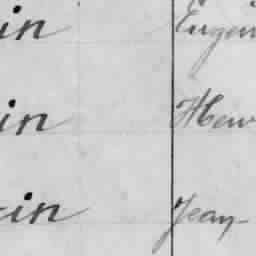 in Eugèn
in Henr
in Jean-